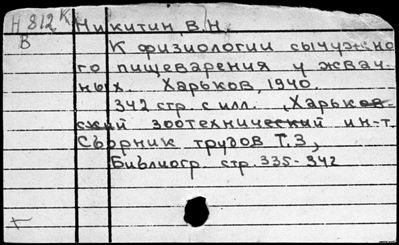 Н 812 К Никитин В.Н.
В
К физиологии сычужно
го пищеварения у жвач-
ных. Харьков, 1940.
342 стр. с илл. „Харьков-
ский зоотехнический ин.-т.
Сборник трудов Т.3,
Библиогр. стр. 335-342